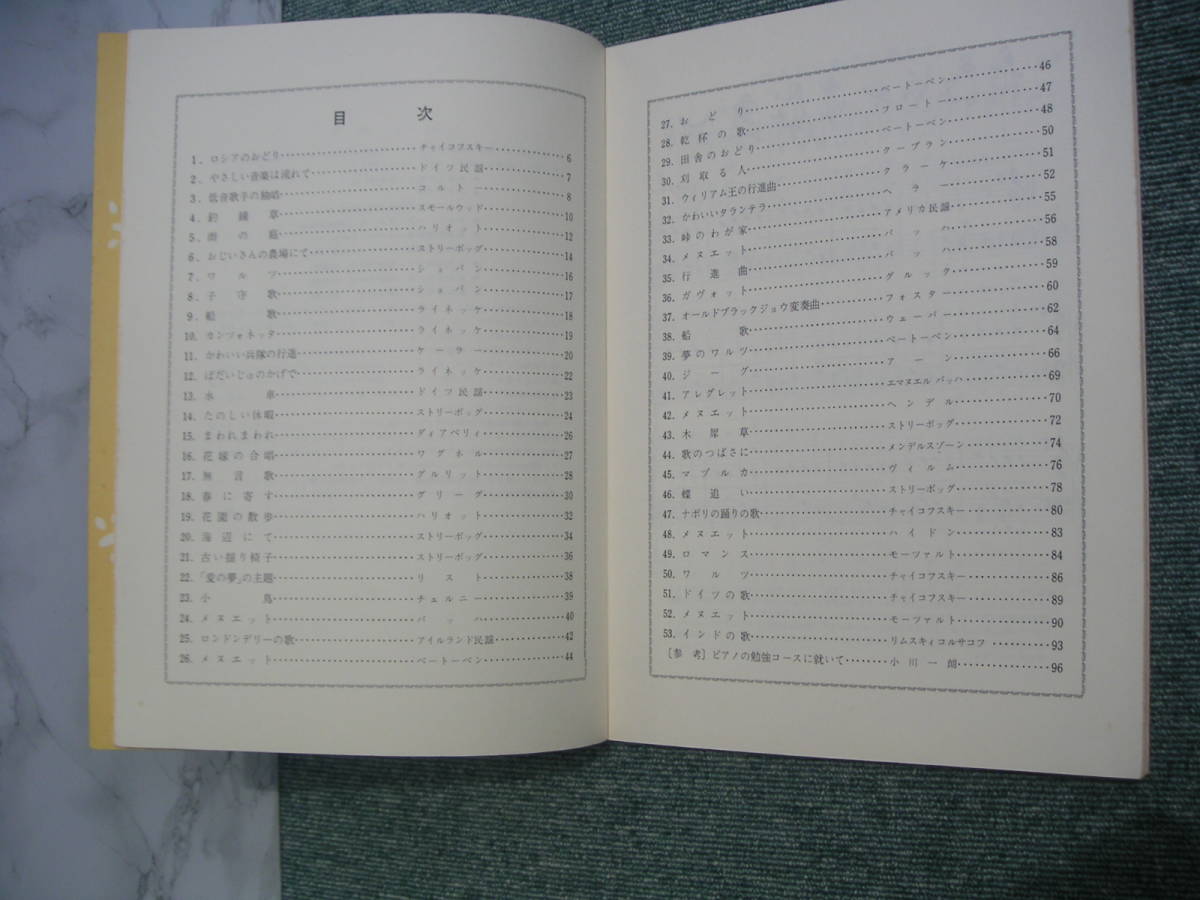 目次
1. ロシアのおどり……チャイコフスキー……6
2. やさしい音楽は流れて……ドイツ民謡……7
3. 低音歌手の独唱……コルトー……8
4. 釣鐘草……スモールウッド……10
5. 雨の庭……ハリオット……12
6. おじいさんの農場にて……ストリーボッグ……14
7. ワルツ……ショパン……16
8. 子守歌……ショパン……17
9. 船歌……ライネッケ……18
10. カンツォネッタ……ライネッケ……19
11. かわいい兵隊の行進……ケーラー……20
12. ぼだいじゅのかげで……ライネッケ……22
13. 水車……ドイツ民謡……23
14. たのしい休暇……ストリーボッグ……24
15. まわれまわれ……ディアベリィ……26
16. 花嫁の合唱……ワグネル……27
17. 無言歌……グルリット……28
18. 春に寄す……グリーグ……30
19. 花園の散歩……ハリオット……32
20. 海辺にて……ストリーボッグ……34
21. 古い揺り椅子……ストリーボッグ……36
22. 「愛の夢」の主題……リスト……38
23. 小鳥……チェルニー……39
24. メヌエット……バッハ……40
25. ロンドンデリーの歌……アイルランド民謡……42
26. メヌエット……ベートーベン……44
27. おどり……ベートーベン……46
28. 乾杯の歌……フロートー……47
29. 田舎のおどり……ベートーベン……48
30. 刈取る人……クープラン……50
31. ウィリアム王の行進曲……クラーケ……51
32. かわいいタランテラ……ヘラー……52
33. 峠のわが家……アメリカ民謡……55
34. メヌエット……バッハ……56
35. 行進曲……バッハ……58
36. ガヴォット……グルック……59
37. オールドブラックジョウ変奏曲……フォスター……60
38. 船歌……ウェーバー……62
39. 夢のワルツ……ベートーベン……64
40. ジーグ……アーン……66
41. アレグレット……エマヌエル バッハ……69
42. メヌエット……ヘンデル……70
43. 木犀草……ストリーボッグ……72
44. 歌のつばさに……メンデルスゾーン……74
45. マズルカ……ヴィルム……76
46. 蝶追い……ストリーボッグ……78
47. ナポリの踊りの歌……チャイコフスキー……80
48. メヌエット……ハイドン……83
49. ロマンス……モーツァルト……84
50. ワルツ……チャイコフスキー……86
51. ドイツの歌……チャイコフスキー……89
52. メヌエット……モーツァルト……90
53. インドの歌……リムスキィコルサコフ……93
〔参考〕ピアノの勉強コースに就いて……小川一朗……96